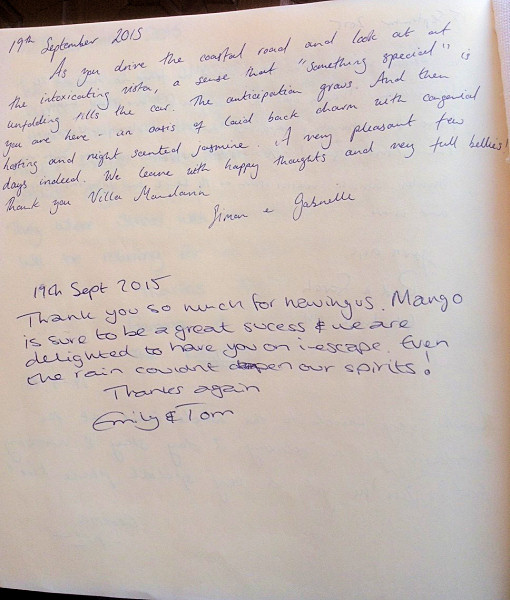 19th September 2015
As you drive the coastal road and look at out
the intoxicating vista, a sense that "something special" is
unfolding fills the car. The anticipation grows. And then
you are here - an oasis of laid back charm with congenial
hosting and night scented jasmine. A very pleasant few
days indeed. We leave with happy thoughts and very full bellies!
Thank you Villa Mandarin
Simon e Gabrielle
19th Sept 2015
Thank you so much for having us. Mango
is sure to be a great sucess & we are
delighted to have you on i-escape. Even
the rain couldnt dapen our spirits!
Thanks again
Emily & Tom